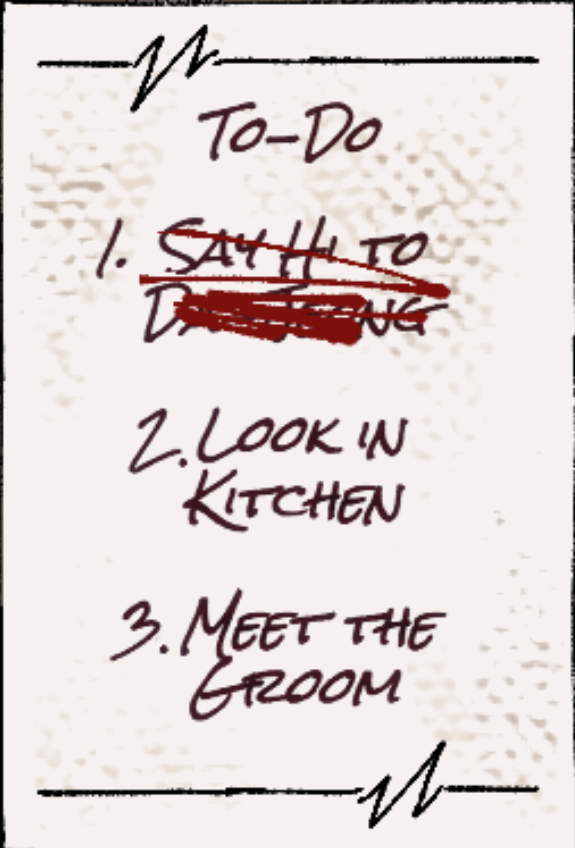 To-Do
1. SAY HI TO
2. LOOK IN
KITCHEN
3. MEET THE
GROOM